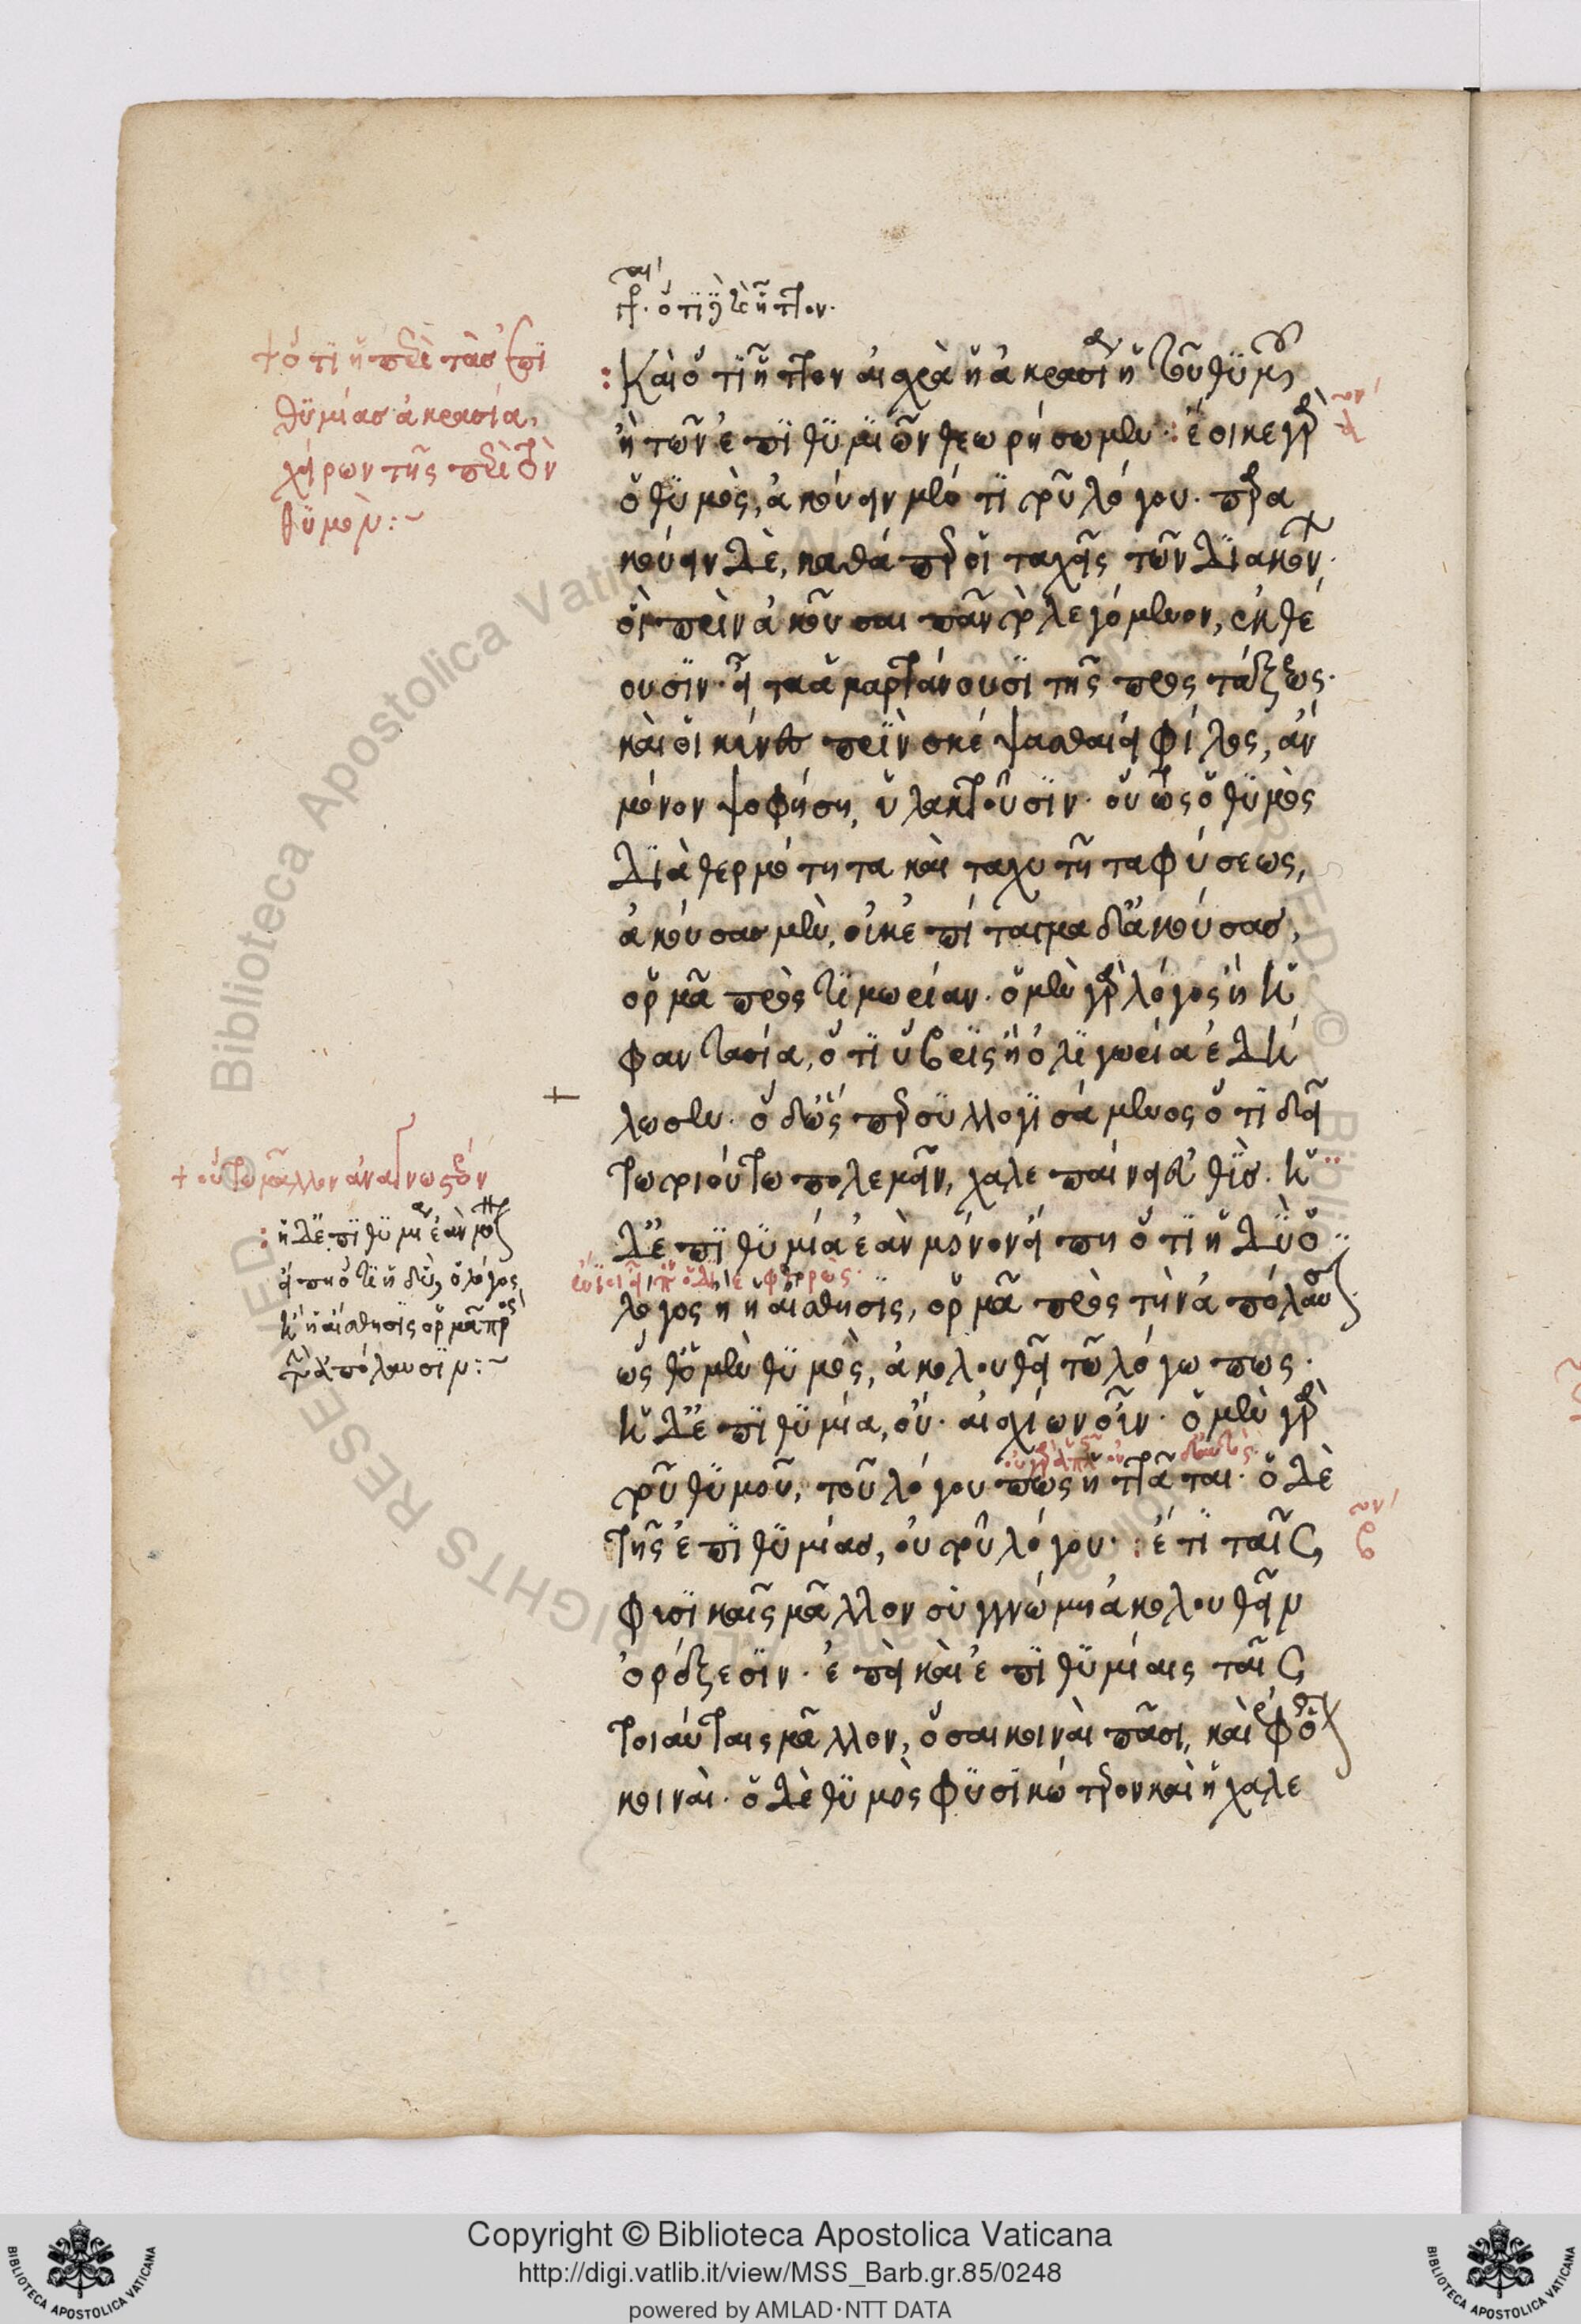 ὅτι ἧττον
Καὶ ὅτι ἧττον αἰσχρὰ ἡ ἀκρασία ἡ τοῦ θυμοῦ
ἢ τῶν ἐπιθυμιῶν θεωρήσωμεν· ἔοικε γὰρ
ὁ θυμὸς, ἀκούειν μέν τι τοῦ λόγου· παρα
κούειν δὲ, καθάπερ οἱ ταχεῖς τῶν διακόνων·
οἳ πρὶν ἀκοῦσαι πᾶν τὸ λεγόμενον, ἐκθέ
ουσιν· εἶτα ἁμαρτάνουσι τῆς προστάξεως·
καὶ οἱ κύνες πρὶν σκέψασθαι εἰ φίλος, ἂν
μόνον ψοφήση, ὑλακτοῦσιν· οὕτως ὁ θυμὸς
διὰ θερμότητα καὶ ταχυτῆτα φύσεως,
ἀκούσας μὲν, οὐκ ἐπίταγμα δ' ἀκούσας,
ὁρμᾶ πρὸς τιμωρίαν· ὁ μὲν γὰρ λόγος ἢ ἡ
φαντασία, ὅτι ὕβρις ἢ ὀλιγωρία ἐδή
λωσεν· ὁ δ' ὥσπερ συλλογισάμενος ὅτι δεῖ
τῶ τοιούτω πολεμεῖν, χαλεπαίνει δ' εὐθὺς· ἡ
δ' ἐπιθυμία ἐὰν μόνον εἴπη ὅτι ἡδὺ ὁ
λόγος ἢ ἡ αἴσθησις, ὁρμᾶ πρὸς τὴν ἀπόλαυσιν
ὥσθ' ὁ μὲν θυμὸς, ἀκολουθεῖ τῶ λόγω πως·
ἡ δ' ἐπιθυμία, οὔ· αἰσχίων οὖν· ὁ μὲν γὰρ
τοῦ θυμοῦ, τοῦ λόγου πως ἡττᾶται· ὁ δὲ
τῆς ἐπιθυμίας, οὐ τοῦ λόγου· ἔτι ταῖς
φυσικαῖς μᾶλλον συγγνώμη ἀκολουθεῖν
ὀρέξεσιν· ἐπεὶ καὶ ἐπιθυμίαις ταῖς
τοιαύταις μᾶλλον, ὅσαι κοιναὶ πᾶσι, καὶ ἐφ' ὅσον
κοιναὶ· ὁ δὲ θυμὸς φυσικώτερον καὶ ἡ χαλε
+ ὅτι ἡ περὶ τὰς ἐπι
θυμίας ἀκρασία,
χείρων τῆς περὶ τὸν
θυμόν:~
+ οὕτω μᾶλλον ἀναγνωστέον
ἡ δ' ἐπιθυμία ἐὰν μόνον
εἴπη ὅτι ἡδὺ, ὁ λόγος
ἢ ἡ αἴσθησις ὁρμᾶ πρὸς
τὴν ἀπόλαυσιν:~
Copyright © Biblioteca Apostolica Vaticana
http://digi.vatlib.it/view/MSS_Barb.gr.85/0248
powered by AMLAD·NTT DATA